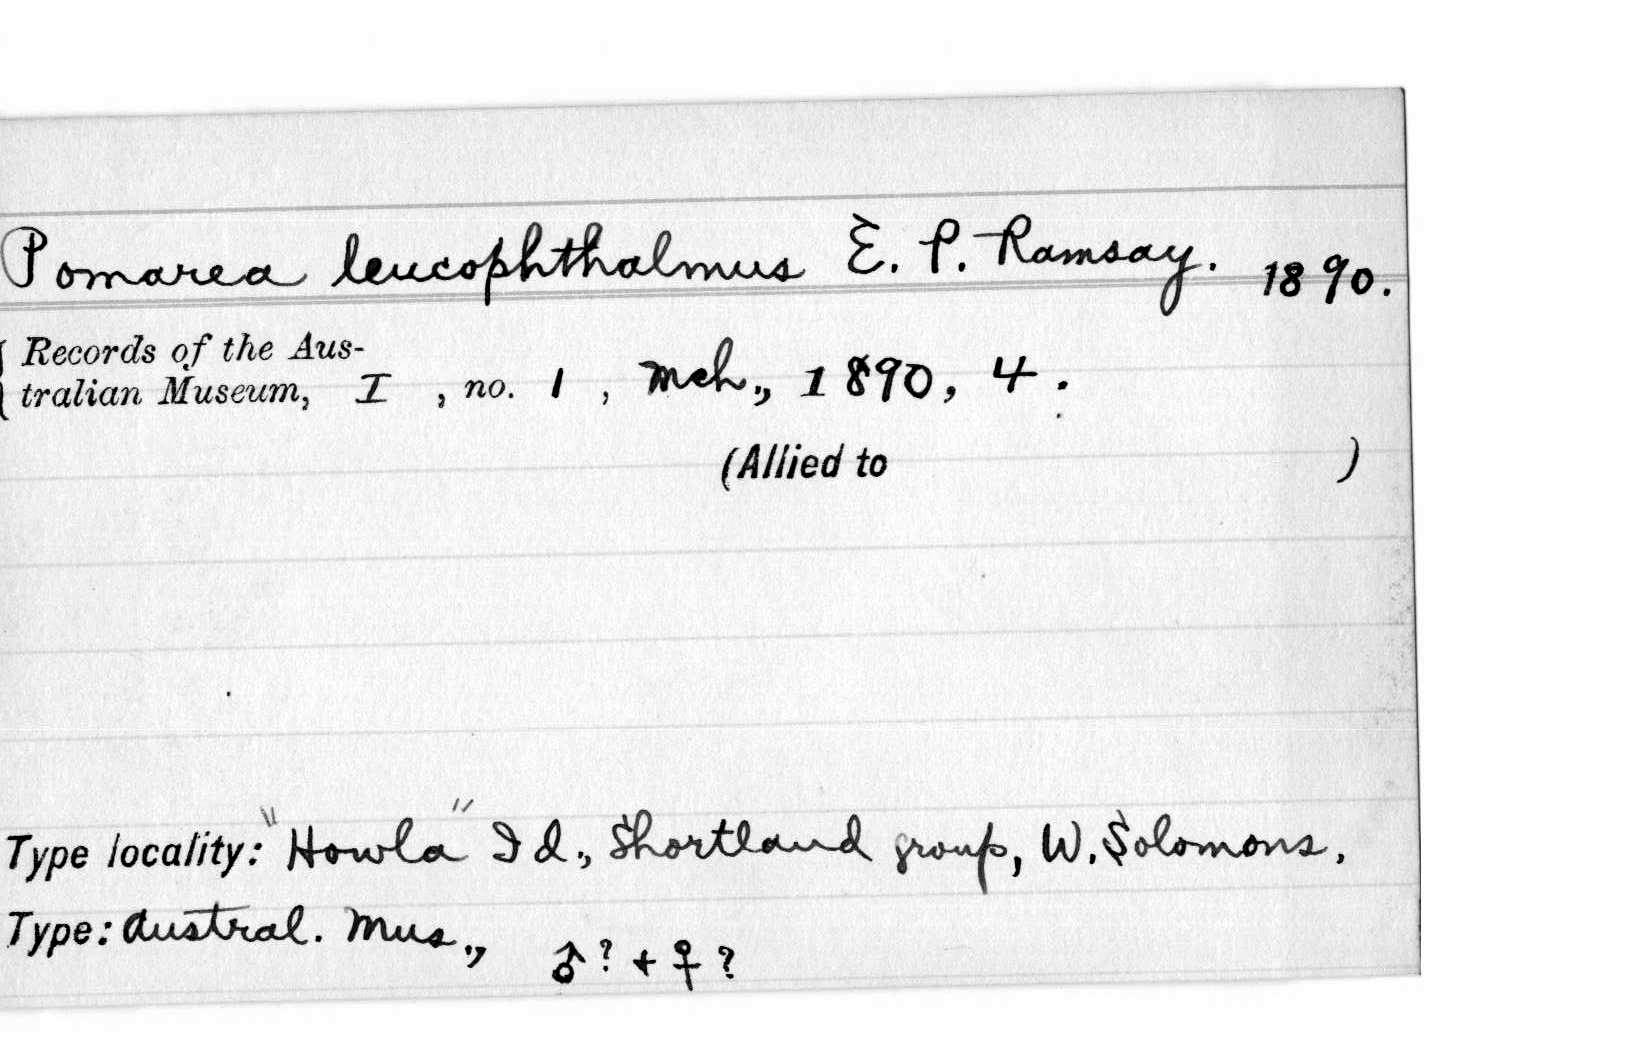 Pomarea leucophthalmus E. P. Ramsay. 1890.
Records of the Aus-
tralian Museum, I , no. 1 , Mch., 1890, 4.
(Allied to )
Type locality: "Howla" Id., Shortland group, W. Solomons.
Type: Austral. Mus., ♂? + ♀?